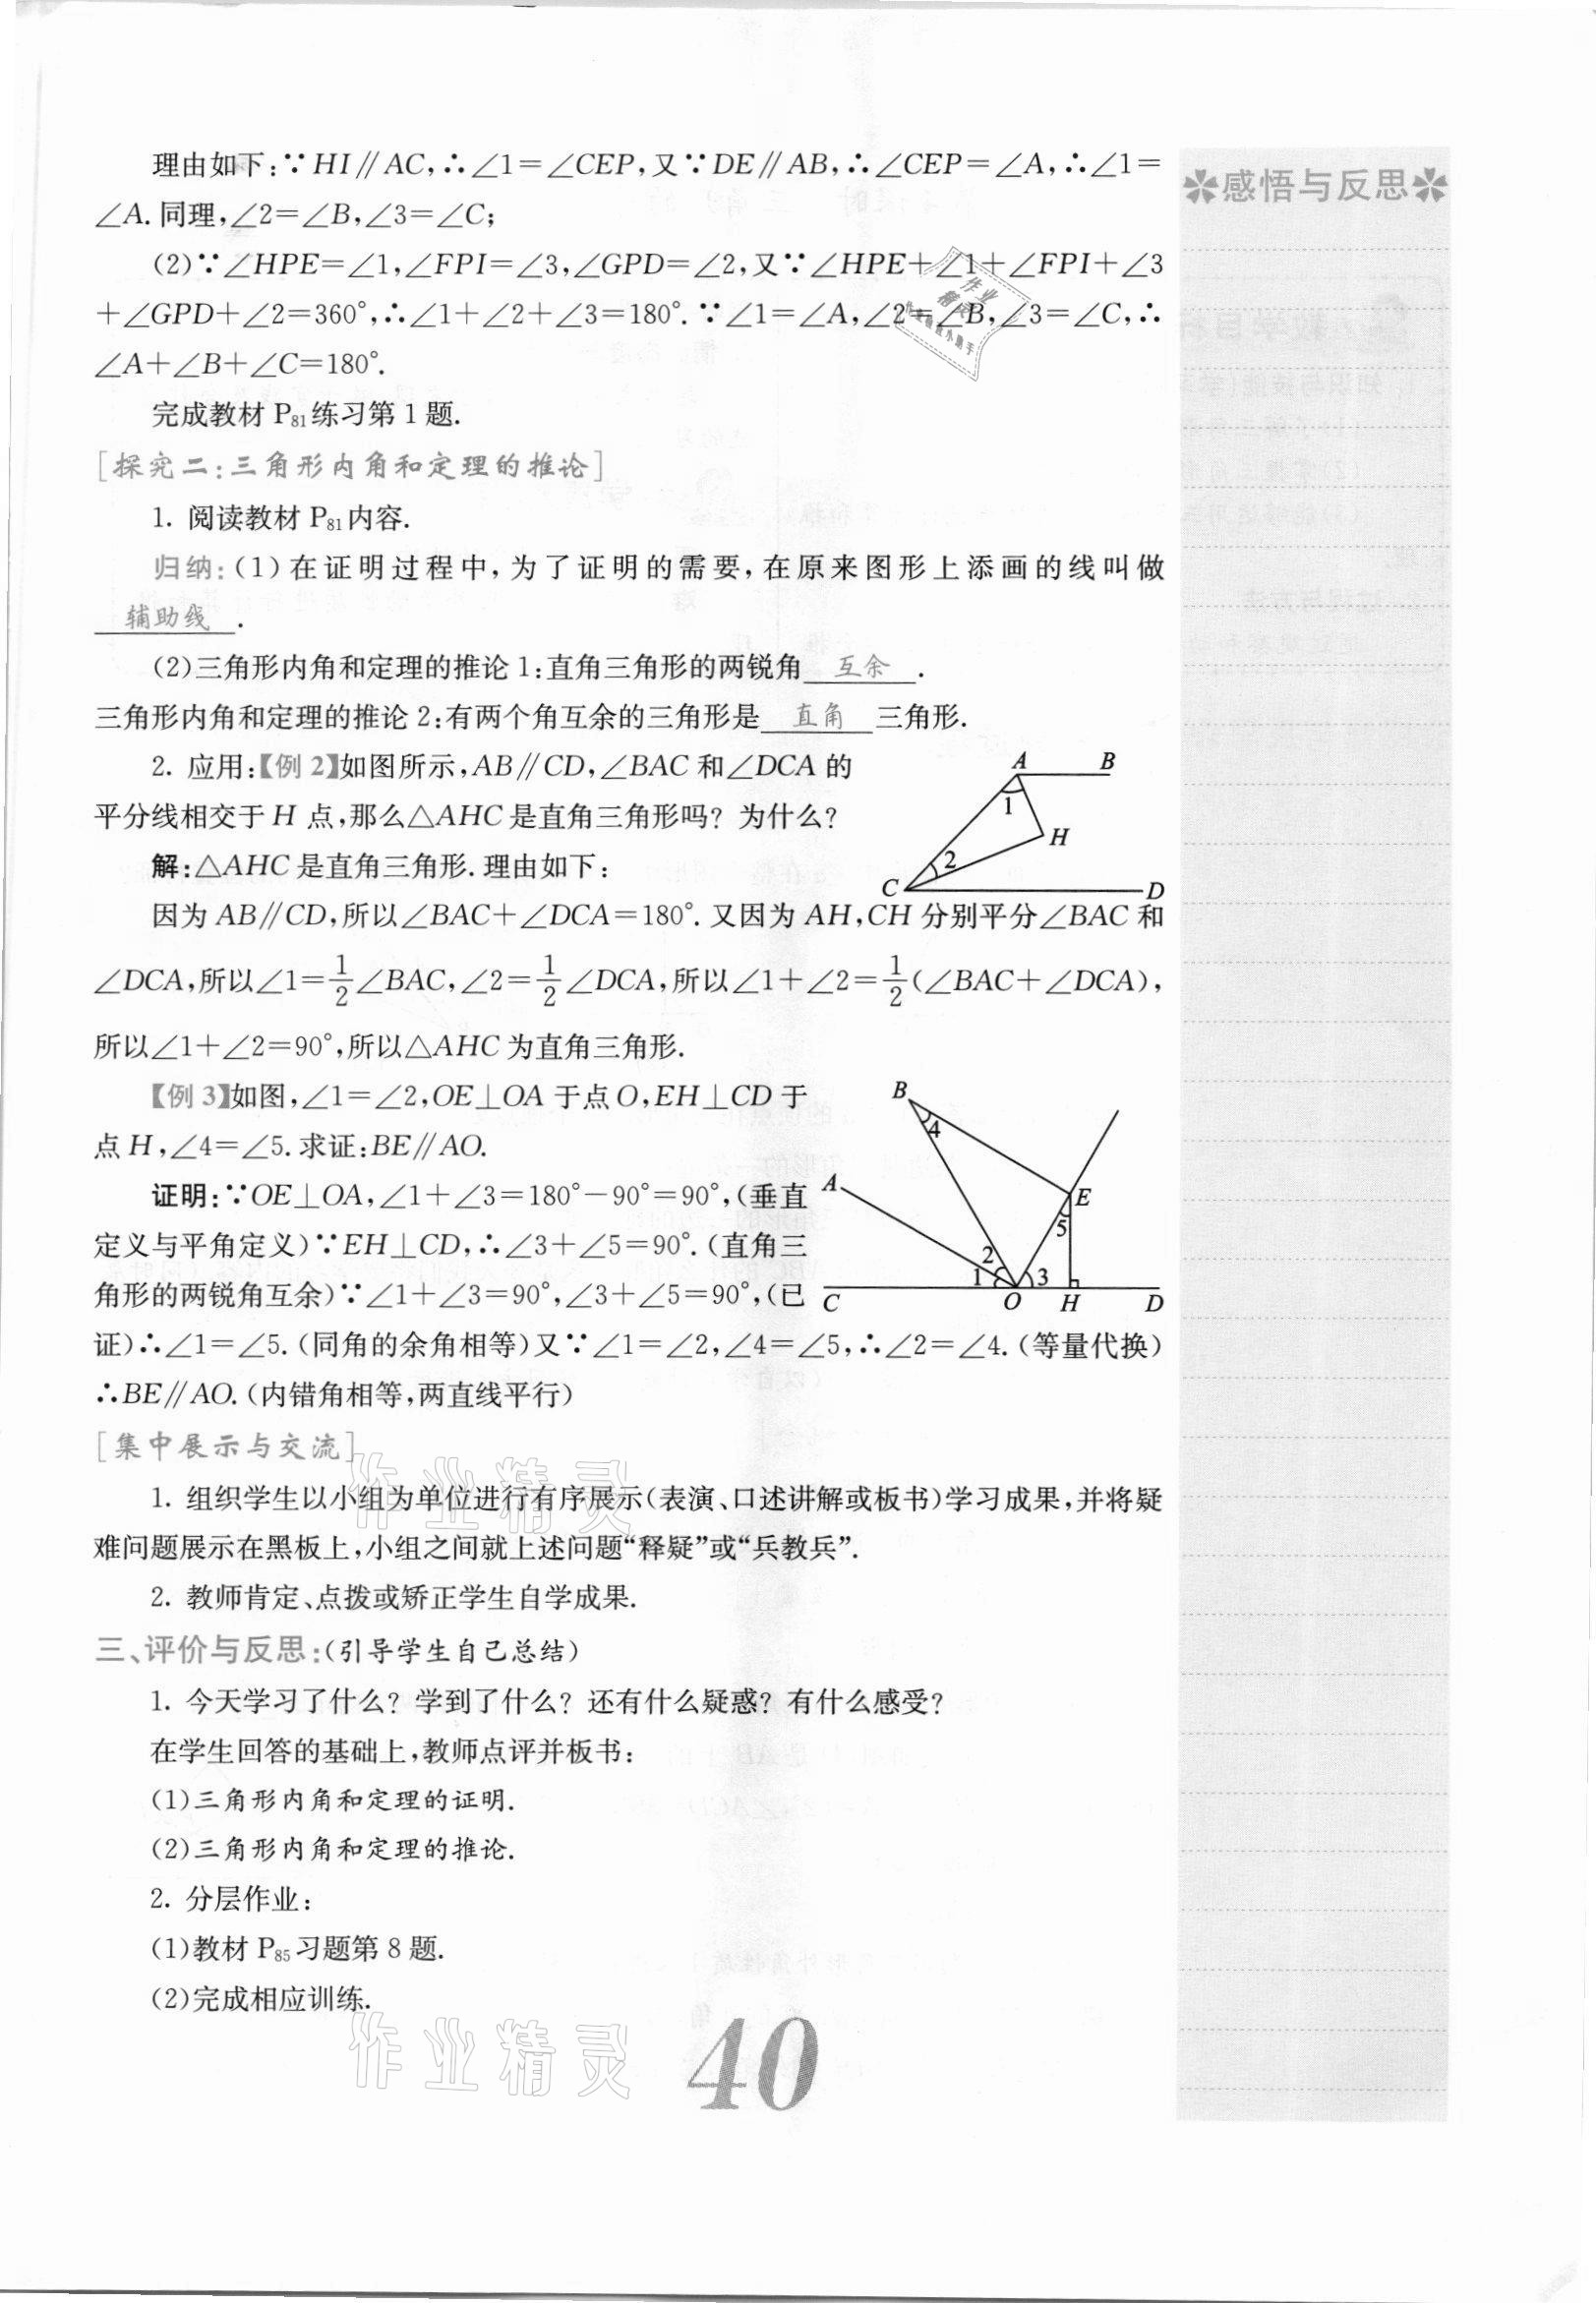 理由如下:∵HI∥AC,∴∠1=∠CEP,又∵DE∥AB,∴∠CEP=∠A,∴∠1=
∠A.同理,∠2=∠B,∠3=∠C;
(2)∵∠HPE=∠1,∠FPI=∠3,∠GPD=∠2,又∵∠HPE+∠1+∠FPI+∠3
+∠GPD+∠2=360°,∴∠1+∠2+∠3=180°.∵∠1=∠A,∠2=∠B,∠3=∠C,∴
∠A+∠B+∠C=180°.
完成教材 P81 练习第 1 题.
[探究二:三角形内角和定理的推论]
1. 阅读教材 P81 内容.
归纳:(1)在证明过程中,为了证明的需要,在原来图形上添画的线叫做
辅助线.
(2)三角形内角和定理的推论 1:直角三角形的两锐角 互余 .
三角形内角和定理的推论 2:有两个角互余的三角形是 直角 三角形.
2. 应用:【例 2】如图所示,AB∥CD,∠BAC 和∠DCA 的
平分线相交于 H 点,那么△AHC 是直角三角形吗? 为什么?
解:△AHC 是直角三角形.理由如下:
A B
1
H
2
C D
因为 AB∥CD,所以∠BAC+∠DCA=180°.又因为 AH,CH 分别平分∠BAC 和
∠DCA,所以∠1=1/2∠BAC,∠2=1/2∠DCA,所以∠1+∠2=1/2(∠BAC+∠DCA),
所以∠1+∠2=90°,所以△AHC 为直角三角形.
【例 3】如图,∠1=∠2,OE⊥OA 于点 O,EH⊥CD 于
点 H,∠4=∠5.求证:BE∥AO.
证明:∵OE⊥OA,∠1+∠3=180°-90°=90°,(垂直
定义与平角定义)∵EH⊥CD,∴∠3+∠5=90°.(直角三
角形的两锐角互余)∵∠1+∠3=90°,∠3+∠5=90°,(已
B
4
A
E
5
2
1 3
C O H D
证)∴∠1=∠5.(同角的余角相等)又∵∠1=∠2,∠4=∠5,∴∠2=∠4.(等量代换)
∴BE∥AO.(内错角相等,两直线平行)
[集中展示与交流]
1. 组织学生以小组为单位进行有序展示(表演、口述讲解或板书)学习成果,并将疑
难问题展示在黑板上,小组之间就上述问题“释疑”或“兵教兵”.
2. 教师肯定、点拨或矫正学生自学成果.
三、评价与反思:(引导学生自己总结)
1. 今天学习了什么? 学到了什么? 还有什么疑惑? 有什么感受?
在学生回答的基础上,教师点评并板书:
(1)三角形内角和定理的证明.
(2)三角形内角和定理的推论.
2. 分层作业:
(1)教材 P85 习题第 8 题.
(2)完成相应训练.
40
感悟与反思
作业精灵
作业精灵
作业
精灵